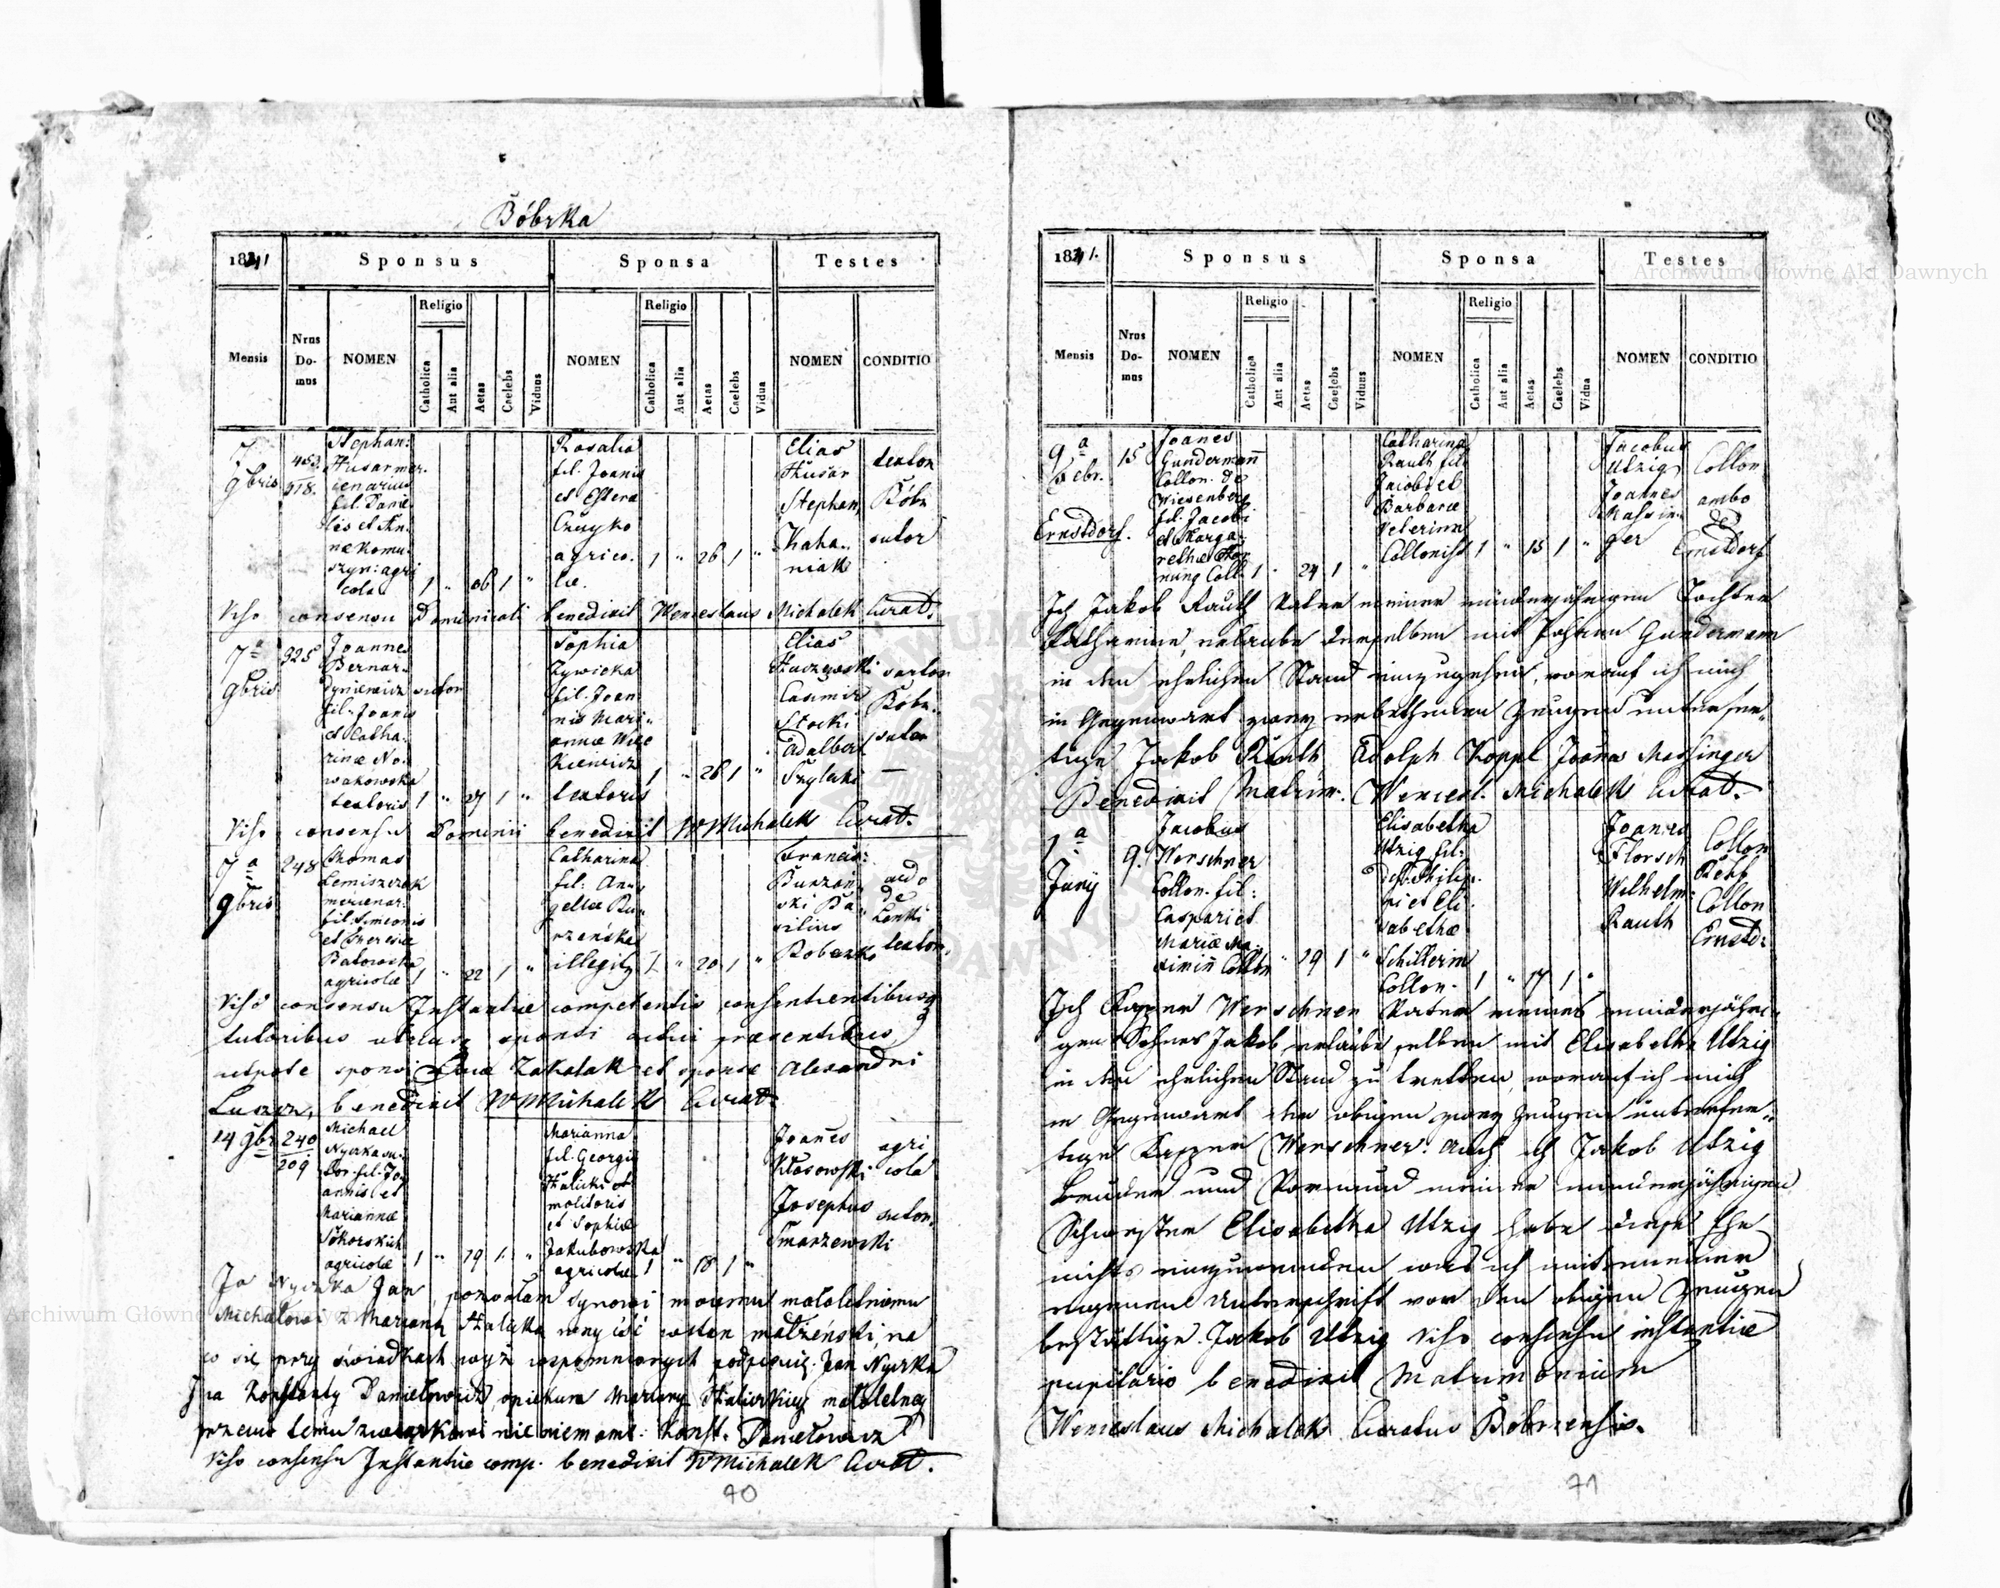 Bóbrka
1841
Sponsus
Sponsa
Testes
Mensis
Nrus Domus
NOMEN
Religio
Catholica
Aut alia
Aetas
Caelebs
Viduus
NOMEN
Religio
Catholica
Aut alia
Aetas
Caelebs
Vidua
NOMEN
CONDITIO
7
9bris
453.
518.
Stephan:
Husar mer.
cenarius
fil. Danie
lis et An.
næ Komu.
szyn: agri
cola
1 " 26 1 "
Rosalia
fil. Joanis
et Estera
agrico.
læ.
1 " 26 1 "
Elias
Husar
Stephan
Kaha..
niak
textor
Bóbr.
sutor
Viso consensu Dominicali benedixit Wenceslaus Michalek Curat.
7a
9bris
325
Joannes
Bernar.
dyniewicz sutor
fil. Joanis
et Catha.
rinæ No.
wakowska
textoris
1 " 27 1 "
Sophia
Żywicka
fil. Joan
nis Mari.
annæ Wil
kiewicz
textoris
1 " 26 1 "
Elias
Casimir
Stocki
Adalbert
Szylski
sartor
Bóbr.
sutor
—
Viso consensu Dominii benedixit WMichalek Curat.
7a
9bris
248
Thomas
Lemiszczak
mercenar.
fil. Simeonis
et Theresiæ
Batowska
agricolæ
1 " 22 1 "
Catharina
fil: An.
gelæ Bu.
rzańska
illegit.
1 " 20 1 "
Francis:
Burzań.
ski Ba
silius
de
textor.
Viso consensu Instantiæ competentis consentientibusq
tutoribus utriusq sponsi actui præsentibus
utpote sponsi Zakalak et sponsæ Alexandri
benedixit WMichalek Curat.
14 9br.
240
209
Michael
Nyczka su.
tor. fil. Jo
annis et
Mariannæ
Sikorskich
agricolæ
1 " 19 1 "
Marianna
fil. Georgii
Halicki
molitoris
et Sophiæ
Jakubowska
agricolæ
1 " 18 1 "
Joanes
Kłosowski
Josephus
Smarzewski
agri
cola
sutor.
Ja Nyczka Jan pozwalam synowi moiemu małoletniemu
Michałowi z Marianną Halicką wnyiść wstan małżeński, na
co się przy świadkach wyż wspomnionych podpisuię. Jan Nyczka
Ja Konstanty Daniełowicz opiekun Maryany Halickiey małoletney
przeciw temu związkowi nic niemam. Konst. Daniełowicz
Viso consensu Instantiæ comp. benedixit WMichalek Curat.
70
1841.
Sponsus
Sponsa
Testes
Mensis
Nrus Domus
NOMEN
Religio
Catholica
Aut alia
Aetas
Caelebs
Viduus
NOMEN
Religio
Catholica
Aut alia
Aetas
Caelebs
Vidua
NOMEN
CONDITIO
9a
Febr.
Ernstdorf.
15
Joanes
Gundermann
Collon. de
Wiesenberg
fil. Jacobi
et Marga.
rethæ Hor
nung Coll.
1 " 24 1 "
Catharina
Rauth fil.
Jacobi et
Barbaræ
Veterina
Collonist
1 " 15 1 "
Jacobus
Utzig
Joannes
Massin.
ger
Collon
ambo
de
Ernstdorf
Ich Jakob Rauth Vater meiner minderjährigen Tochter
Katharine, erlaube derselben mit Johan Gundermann
in den ehelichen Stand einzugehen, worauf ich mich
in Gegenwart zwey erbethenen Zeugen unterfer„
tige Jakob Rauth Adolph Koppl Joann Massinger
Benedixit Matrim. Wencesl. Michalek Curat.
1a
Junij
9.
Jacobus
Werschner
Collon. fil:
Caspari et
Mariæ Ma.
ximin Collon
" 19 1 "
Elisabetha
Utzig fil:
def. Philip.
pi et Eli
sabethæ
Schillerin
Collon.
1 " 17 1 "
Joannes
Florsch
Wilhelm.
Rauth
Collon
Rehf
Collon
Ernstd:
Ich Kasper Werschner Vater meines minderjähri„
gen Sohnes Jakob erlaube selben mit Elisabetha Utzig
in den ehelichen Stand zu tretten, worauf ich mich
in Gegenwart der obigen zwey Zeugen unterfer„
tige Kasper Werschner. Auch ich Jakob Utzig
Bruder und Vormund meiner minderjährigen
Schwester Elisabetha Utzig habe dieser Ehe
nichts einzuwenden was ich mit meiner
eigenen Unterschrift vor den obigen Zeugen
bestättige. Jakob Utzig Viso consensu instantiæ
pupilario benedixit Matrimonium
Wenceslaus Michalek Curatus Bóbrcensis.
71
Archiwum Główne Akt Dawnych
Archiwum Główne Akt Dawnych